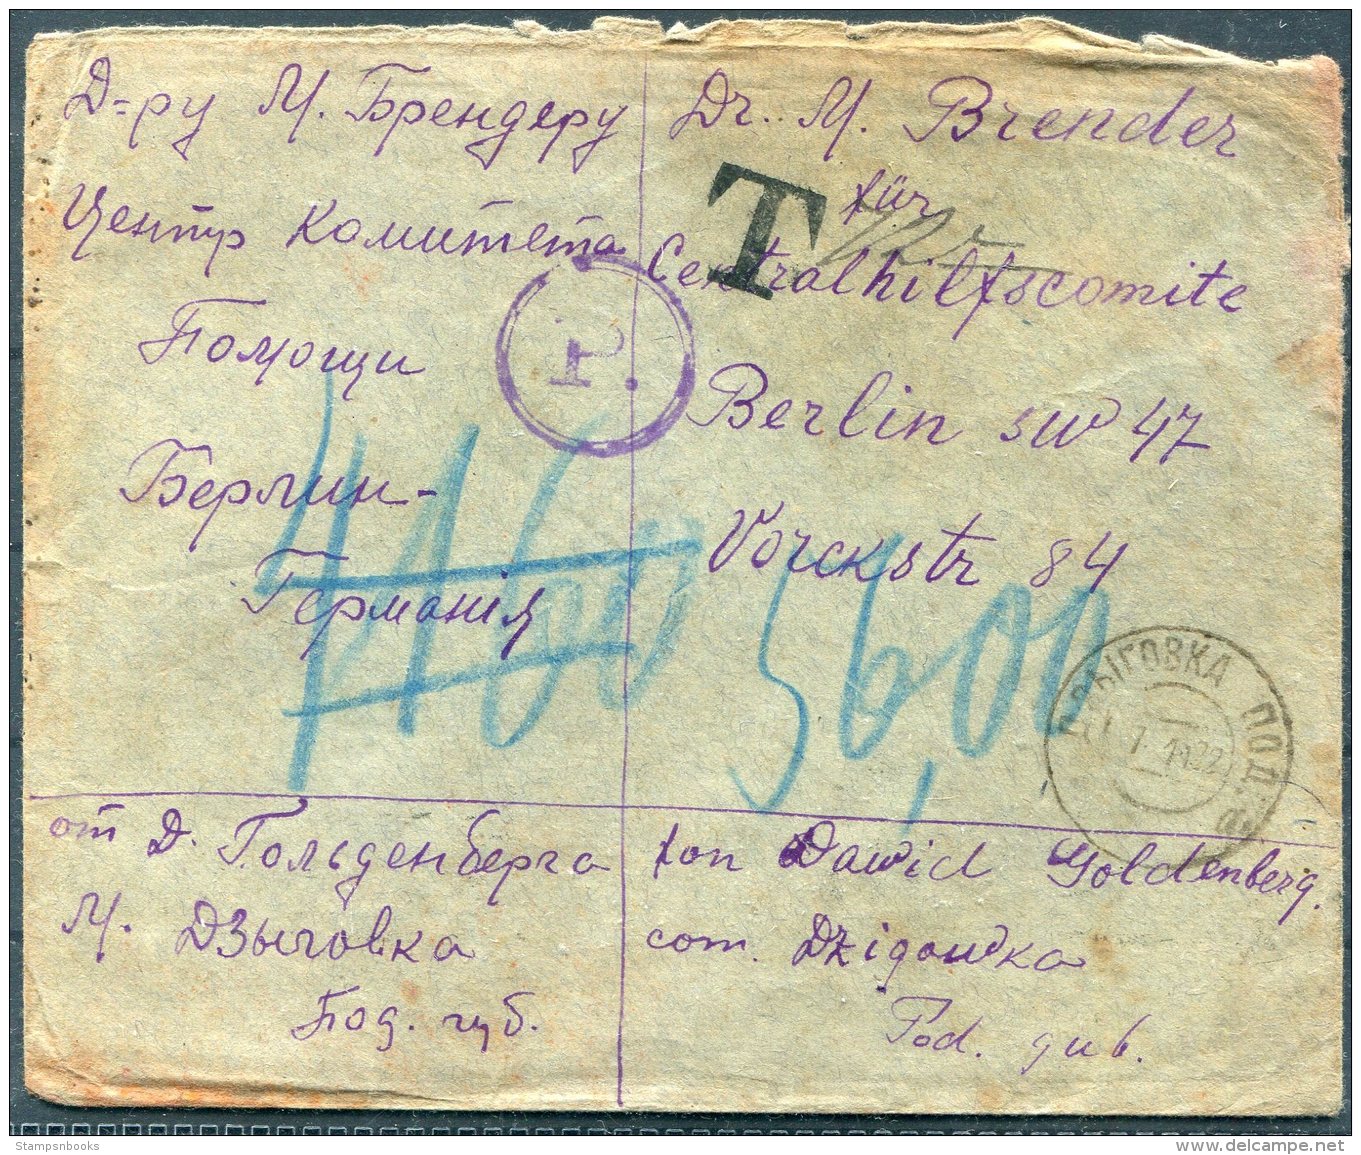 Д-ру М. Брендеру
Центр Комитета
Помощи
Берлин-
Германія
Dr. M. Brender
für
Centralhilfscomite
Berlin SW 47
Yorckstr 84
T
P.
4160
56,00
ДЗЫГОВКА ПОД.
7 4 22
от Д. Гольденберга
М. Дзыговка
Под. губ.
fon Dawid Goldenberg.
com. Dzigowka
Pod. gub.
Stampsnbooks
delcampe.net